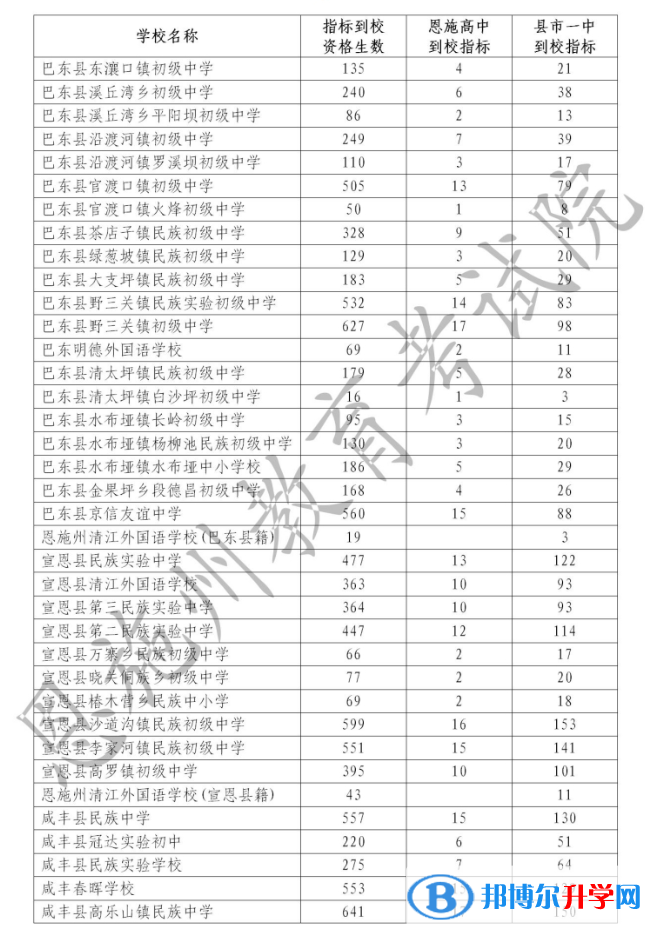 学校名称 指标到校资格生数 恩施高中到校指标 县市一中到校指标
巴东县东瀼口镇初级中学 135 4 21
巴东县溪丘湾乡初级中学 240 6 38
巴东县溪丘湾乡平阳坝初级中学 86 2 13
巴东县沿渡河镇初级中学 249 7 39
巴东县沿渡河镇罗溪坝初级中学 110 3 17
巴东县官渡口镇初级中学 505 13 79
巴东县官渡口镇火烽初级中学 50 1 8
巴东县茶店子镇民族初级中学 328 9 51
巴东县绿葱坡镇民族初级中学 129 3 20
巴东县大支坪镇民族初级中学 183 5 29
巴东县野三关镇民族实验初级中学 532 14 83
巴东县野三关镇初级中学 627 17 98
巴东明德外国语学校 69 2 11
巴东县清太坪镇民族初级中学 179 5 28
巴东县清太坪镇白沙坪初级中学 16 1 3
巴东县水布垭镇长岭初级中学 95 3 15
巴东县水布垭镇杨柳池民族初级中学 130 3 20
巴东县水布垭镇水布垭中小学校 186 5 29
巴东县金果坪乡段德昌初级中学 168 4 26
巴东县京信友谊中学 560 15 88
恩施州清江外国语学校(巴东县籍) 19 3
宣恩县民族实验中学 477 13 122
宣恩县清江外国语学校 363 10 93
宣恩县第三民族实验中学 364 10 93
宣恩县第二民族实验中学 447 12 114
宣恩县万寨乡民族初级中学 66 2 17
宣恩县晓关侗族乡初级中学 77 2 20
宣恩县椿木营乡民族中小学 69 2 18
宣恩县沙道沟镇民族初级中学 599 16 153
宣恩县李家河镇民族初级中学 551 15 141
宣恩县高罗镇初级中学 395 10 101
恩施州清江外国语学校(宣恩县籍) 43 11
咸丰县民族中学 557 15 130
咸丰县冠达实验初中 220 6 51
咸丰县民族实验学校 275 7 64
咸丰春晖学校 553
咸丰县高乐山镇民族中学 641
恩施州教育考试院
B 邦博尔升学网